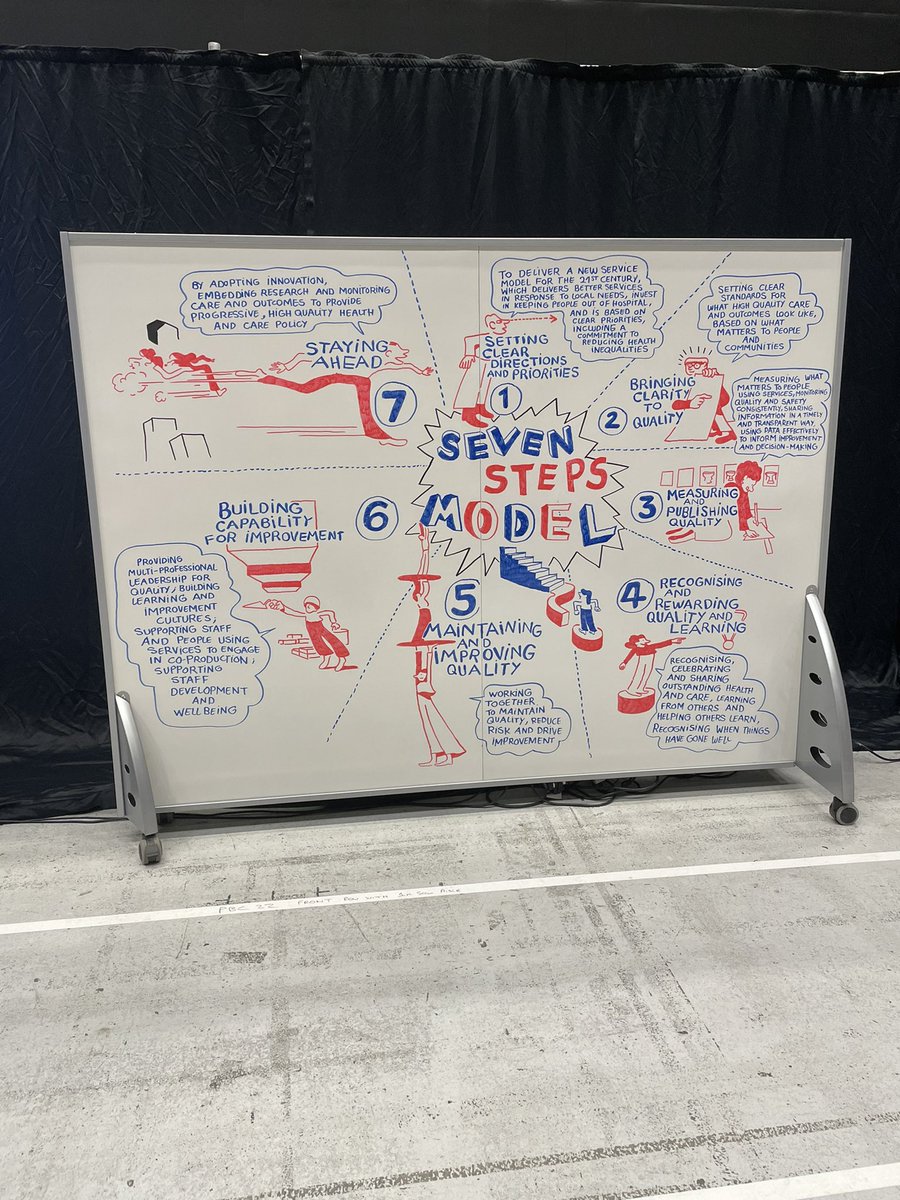 SEVEN
STEPS
MODEL
1
SETTING
CLEAR
DIRECTIONS
AND PRIORITIES
TO DELIVER A NEW SERVICE
MODEL FOR THE 21ST CENTURY,
WHICH DELIVERS BETTER SERVICES
IN RESPONSE TO LOCAL NEEDS, INVEST
IN KEEPING PEOPLE OUT OF HOSPITAL,
AND IS BASED ON
CLEAR PRIORITIES,
INCLUDING A
COMMITMENT TO
REDUCING HEALTH
INEQUALITIES
2
BRINGING
CLARITY
TO
QUALITY
SETTING CLEAR
STANDARDS FOR
WHAT HIGH QUALITY CARE
AND OUTCOMES LOOK LIKE,
BASED ON WHAT
MATTERS TO PEOPLE
AND
COMMUNITIES
3
MEASURING
AND
PUBLISHING
QUALITY
MEASURING WHAT
MATTERS TO PEOPLE
USING SERVICES, MONITORING
QUALITY AND SAFETY
CONSISTENTLY, SHARING
INFORMATION IN A TIMELY
AND TRANSPARENT WAY,
USING DATA EFFECTIVELY
TO INFORM IMPROVEMENT
AND DECISION-MAKING
4
RECOGNISING
AND
REWARDING
QUALITY AND
LEARNING
RECOGNISING,
CELEBRATING
AND SHARING
OUTSTANDING HEALTH
AND CARE, LEARNING
FROM OTHERS AND
HELPING OTHERS LEARN,
RECOGNISING WHEN THINGS
HAVE GONE WELL
5
MAINTAINING
AND
IMPROVING
QUALITY
WORKING
TOGETHER
TO MAINTAIN
QUALITY, REDUCE
RISK AND DRIVE
IMPROVEMENT
6
BUILDING
CAPABILITY
FOR IMPROVEMENT
PROVIDING
MULTI-PROFESSIONAL
LEADERSHIP FOR
QUALITY; BUILDING
LEARNING AND
IMPROVEMENT
CULTURES;
SUPPORTING STAFF
AND PEOPLE USING
SERVICES TO ENGAGE
IN CO-PRODUCTION;
SUPPORTING
STAFF
DEVELOPMENT
AND
WELLBEING
7
STAYING
AHEAD
BY ADOPTING INNOVATION,
EMBEDDING RESEARCH AND MONITORING
CARE AND OUTCOMES TO PROVIDE
PROGRESSIVE, HIGH QUALITY HEALTH
AND CARE POLICY
FRONT ROW WITH